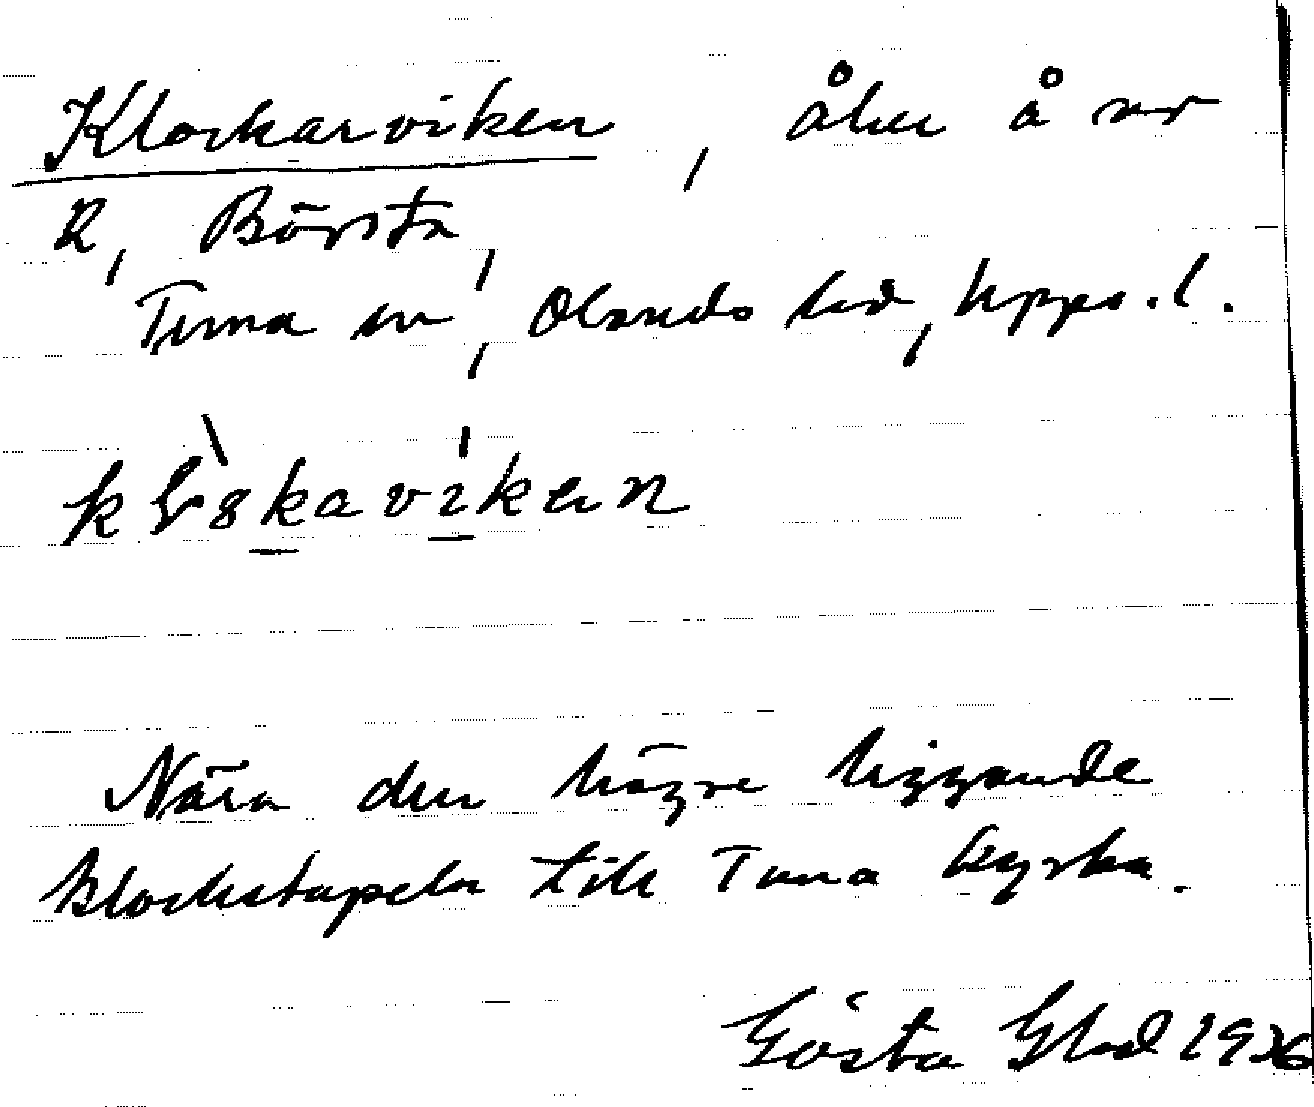 Klockarviken, åker å nr
2, Börsta,
Tuna sn, Olands hd, Upps. l.
Nära den högre liggande
klockstapeln till Tuna kyrka.
Gösta Glad 1936